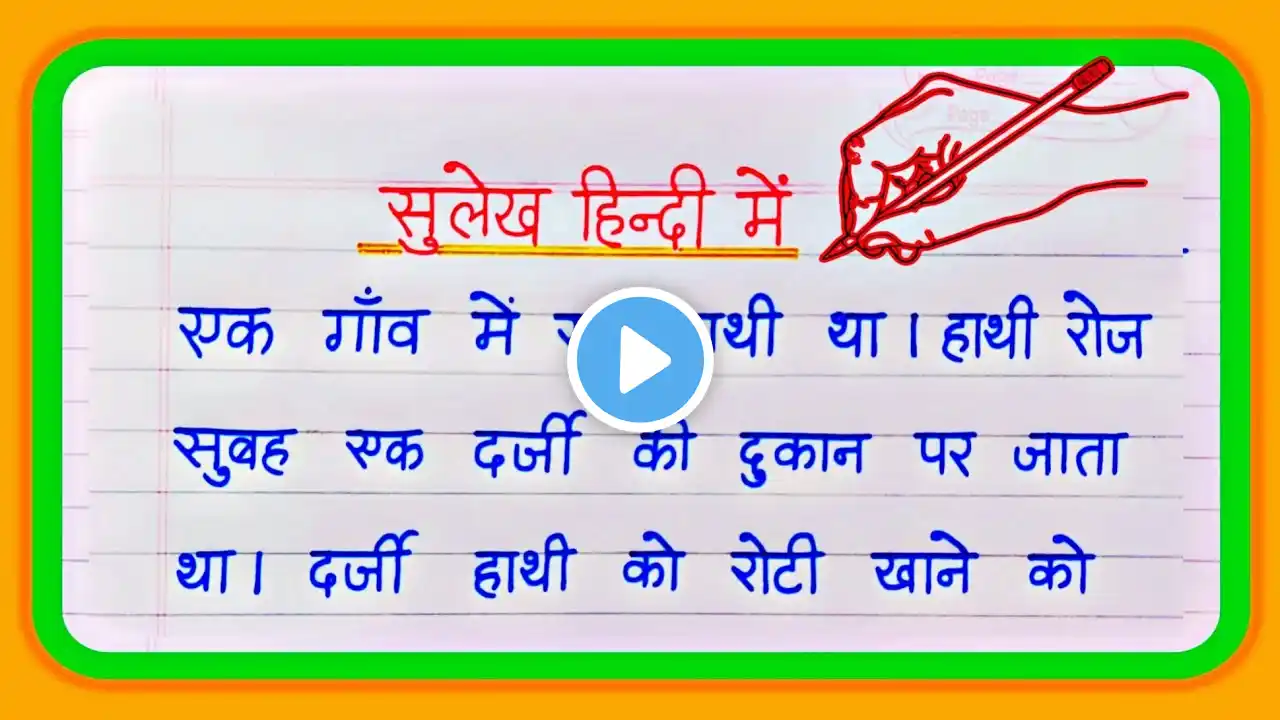 Page
सुलेख हिन्दी में
एक गाँव में था । हाथी रोज
सुबह एक दर्जी की दुकान पर जाता
था । दर्जी हाथी को रोटी खाने को